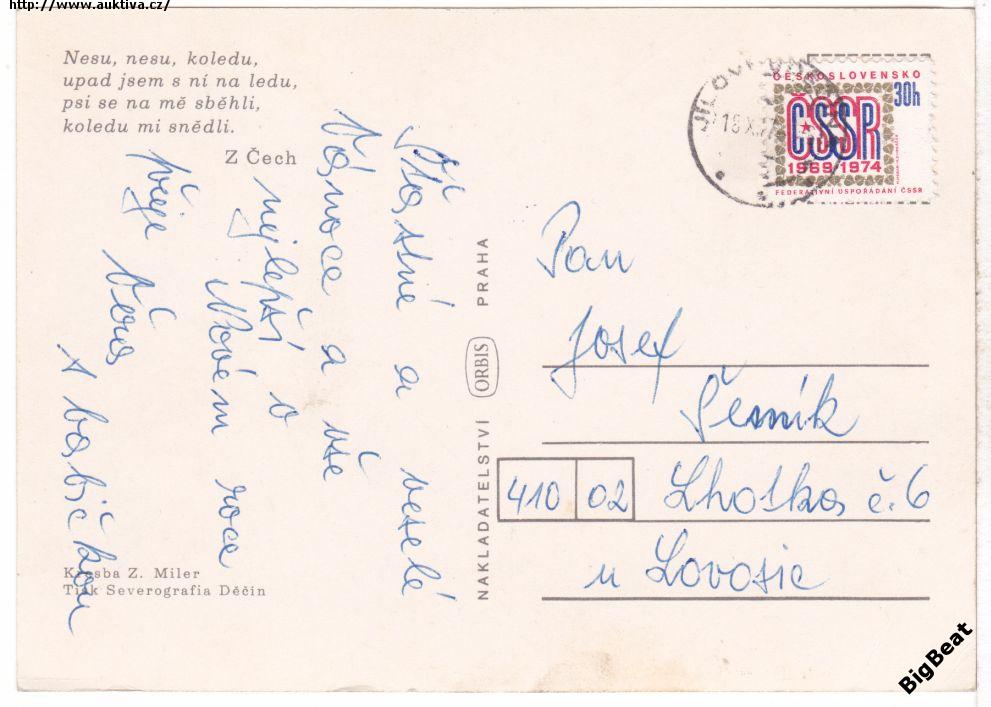 http://www.auktiva.cz/
Nesu, nesu, koledu,
upad jsem s ní na ledu,
psi se na mě sběhli,
koledu mi snědli.
Z Čech
Šťastné a veselé
Vánoce a vše
nejlepší v
Novém roce
přeje Věra
s babičkou
Kresba Z. Miler
Tisk Severografia Děčín
NAKLADATELSTVÍ ORBIS PRAHA
ČESKOSLOVENSKO
30h
ČSSR
1969 1974
FEDERATIVNÍ USPOŘÁDÁNÍ ČSSR
Pan
Josef
410 02 Lhotka č. 6
u Lovosic
BigBeat